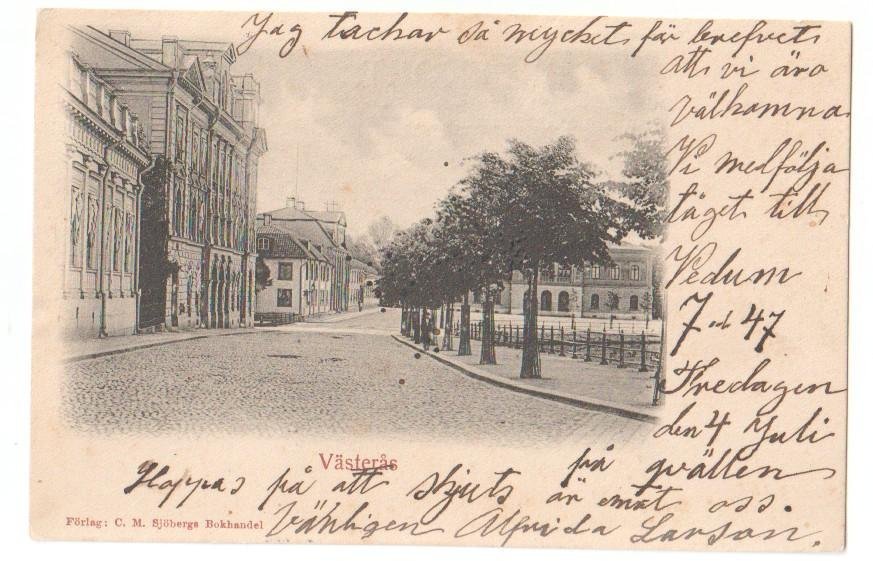 Jag tackar så mycket för brefvet
att vi äro
välkomna
Vi medfölja
tåget till
Vedum
7 47
Fredagen
den 4 Juli
på qvällen
Hoppas på att skjuts är emot oss.
Vänligen Alfrida Larson.
Västerås
Förlag: C. M. Sjöbergs Bokhandel